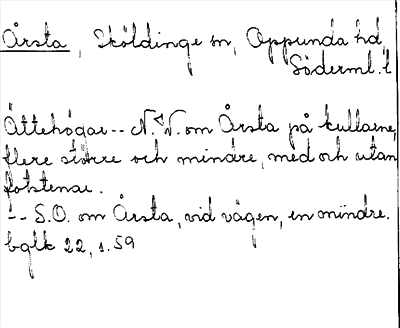 Årsta, Sköldinge sn, Oppunda hd,
Söderml. l
Ättehögar -- N.V. om Årsta på kullarne,
flere större och mindre, med och utan
fotstenar.
-- S.O. om Årsta, vid vägen, en mindre.
bglk 22, s. 59